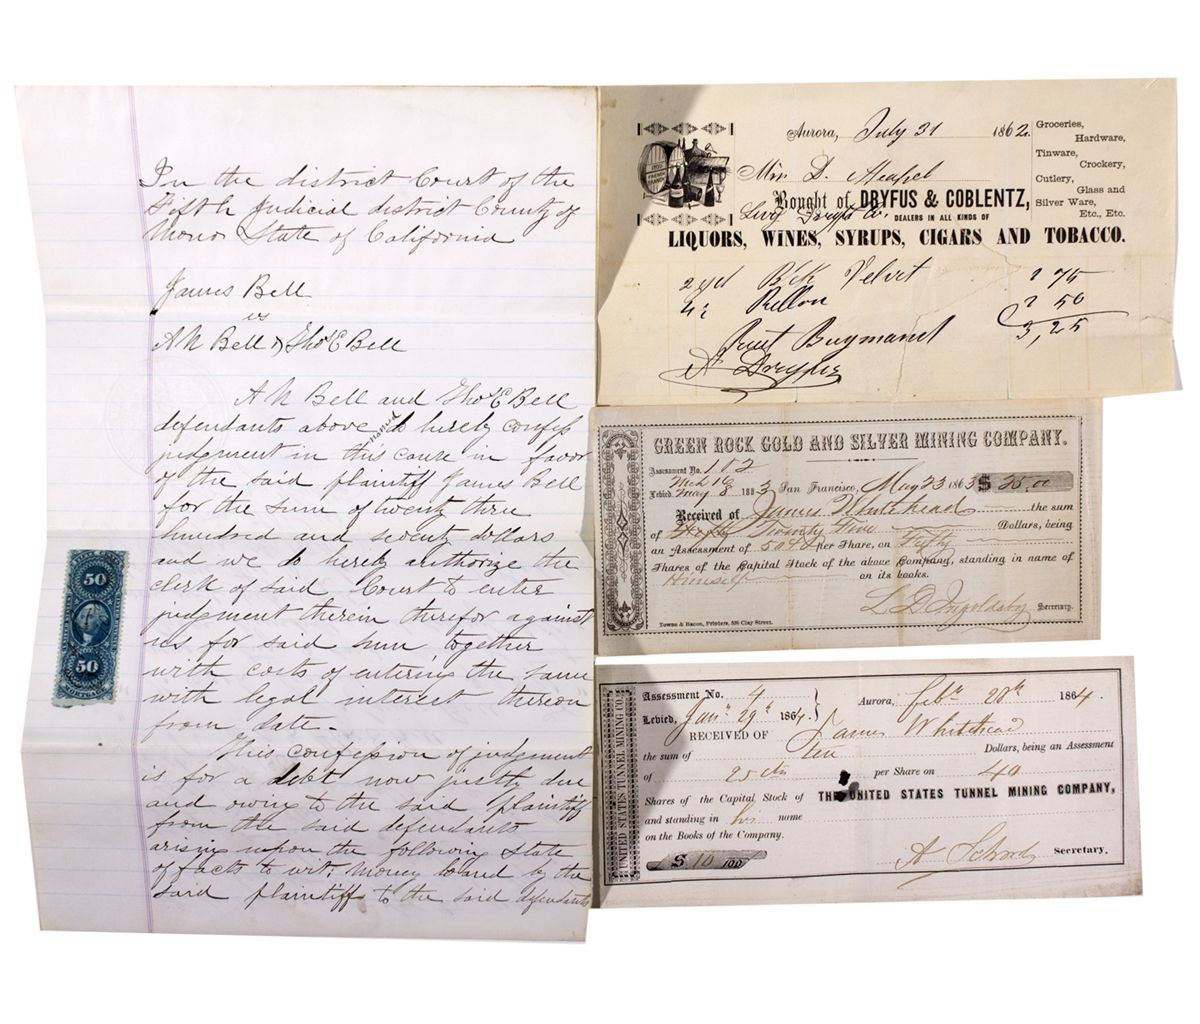 In the district Court of the
Fifth Judicial district County of
Mono State of California
James Bell
vs
A N Bell & Thos E Bell
A N Bell and Thos E Bell
defendants above named do hereby confess
judgment in this cause in favor
of the said plaintiff James Bell
for the sum of twenty three
hundred and seventy dollars
and we do hereby authorize the
clerk of said Court to enter
judgment therein therefor against
us for said sum together
with costs of entering the same
with legal interest thereon
from date.
This confession of judgment
is for a debt now justly due
and owing to the said plaintiff
from the said defendants
arising upon the following State
of facts to wit: Money loaned by the
said plaintiff to the said defendants
50
50
MORTGAGE
Aurora, July 31 1862.
M D.
Bought of DRYFUS & COBLENTZ,
DEALERS IN ALL KINDS OF
LIQUORS, WINES, SYRUPS, CIGARS AND TOBACCO.
Groceries,
Hardware,
Tinware,
Crockery,
Cutlery,
Glass and
Silver Ware,
Etc., Etc.
2 yd Blk Velvit 75
50
3,25
GREEN ROCK GOLD AND SILVER MINING COMPANY.
Assessment No. 1 & 2
Levied, Mch 16 May 8 1863 San Francisco, May 23 1863 $ 25.00
Received of James Whitehead the sum
of Twenty five Dollars, being
an Assessment of 50 cts per Share, on Fifty
Shares of the Capital Stock of the above Company, standing in name of
Himself on its books.
L. D. Ingoldsby Secretary.
Towne & Bacon, Printers, 536 Clay Street.
UNITED STATES TUNNEL MINING CO.
Assessment No. 4
Levied, Jany 29th 1864. Aurora, Feby 28th 1864.
RECEIVED OF James Whitehead
the sum of Ten Dollars, being an Assessment
of 25 cts per Share on 40
Shares of the Capital Stock of THE UNITED STATES TUNNEL MINING COMPANY,
and standing in his name
on the Books of the Company.
$ 10 /100
A Secretary.